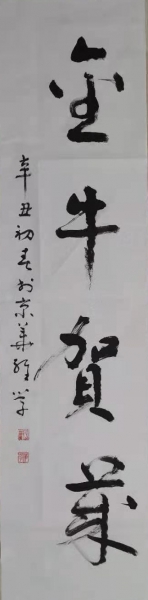 金牛賀歲
辛丑初春於京華維學